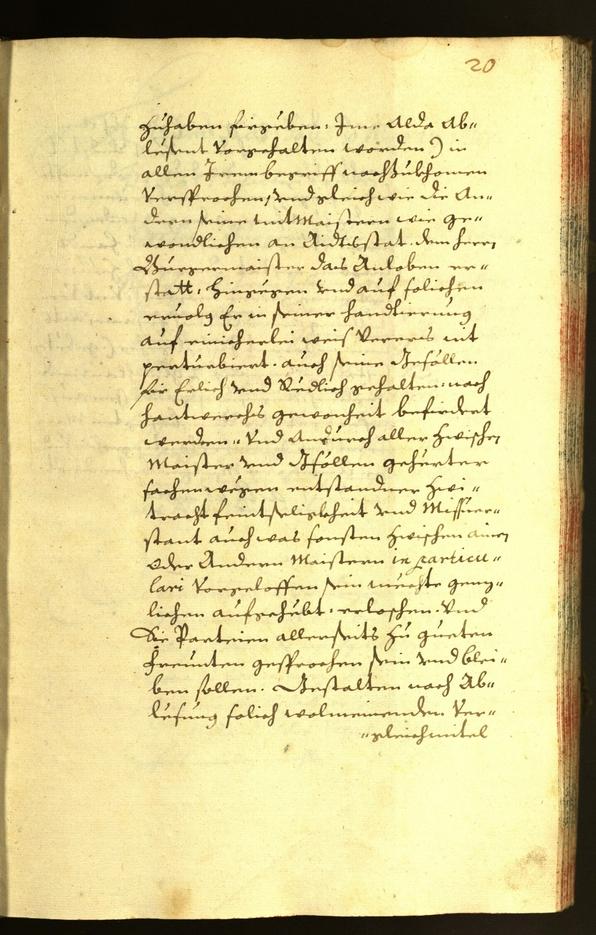 20
zuhaben fürgeben: Ime Alda Ab„
lesent vorgehalten worden) in
allen Irem begriff nachzukhomen
versprochen, vnd gleich wie die An„
dern seine mit Maistern wie ge„
wondlichen an Aidtsstat dem herrn
Burgermaister das Anloben er„
statt, hingegen vnd auf solichen
ervolg Er in seiner handtierung
auf einicherlei weis verers nit
perturbiert. auch seine Gesöllen
für Erlich vnd Redlich gehalten: nach
hantwerchs gewonheit befürdert
werden„ vnd Andurch aller zwischen
Maister vnd Gsöllen geherter
sachen wegen entstandner zwi„
tracht feintseligkheit vnd Missuer„
stant auch was sonsten zwischen ainen
oder Andern Maistern in particu„
lari vorgeloffen sein mechte genz„
lichen aufgehebt. erloschen. vnd
die Parteien allerseits zu gueten
freunten gesprochen sein vnd blei„
ben sollen. Gestalten nach Ab„
lesung solich wolmeinenden ver„
„gleichmitel